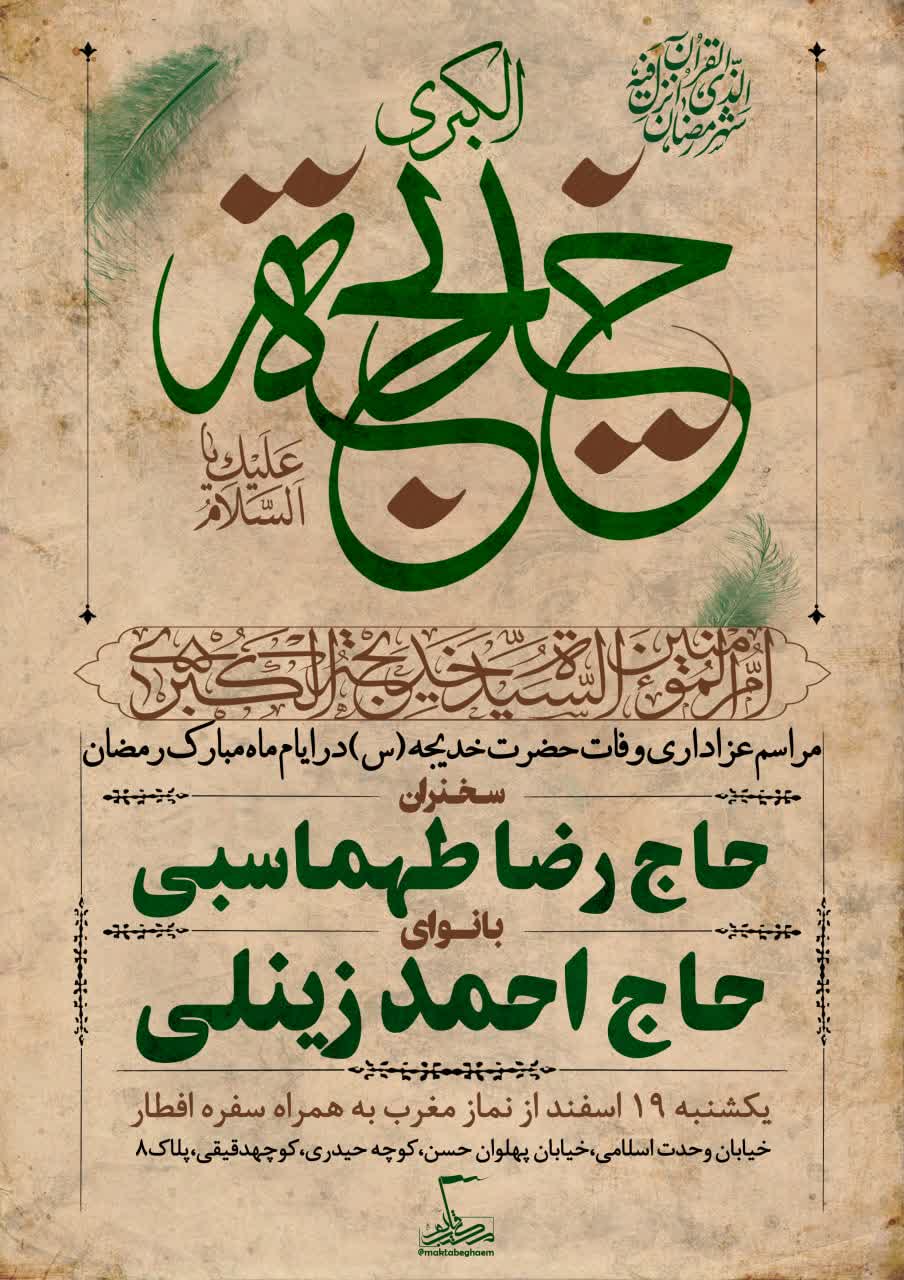 شهر رمضان الذی انزل فیه القرآن
خدیجة الکبری
السلام علیك یا
ام المؤمنین السیدة خدیجة الکبری
مراسم عزاداری وفات حضرت خدیجه (س) در ایام ماه مبارک رمضان
سخنران
حاج رضا طهماسبی
بانوای
حاج احمد زینلی
یکشنبه ۱۹ اسفند از نماز مغرب به همراه سفره افطار
خیابان وحدت اسلامی،خیابان پهلوان حسن،کوچه حیدری،کوچهدقیقی،پلاک۸
@maktabeghaem